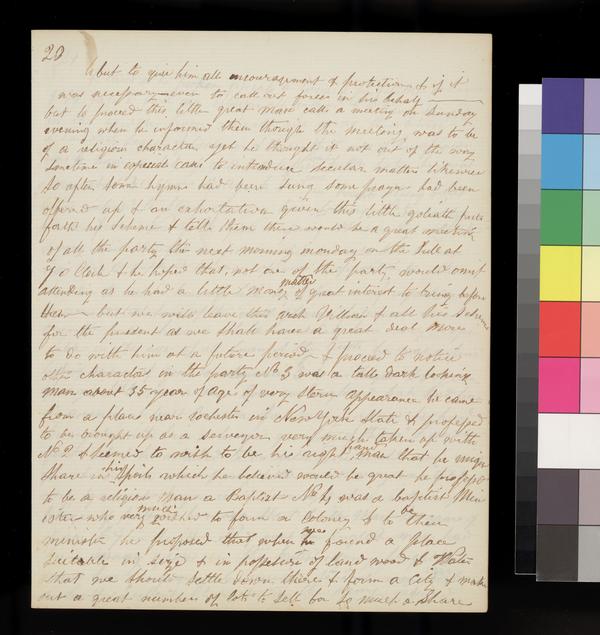 20
but to give him all encouragement & protection & if it
was necessary even to call out forces in his behalf
but to proceed this little great man calls a meeting on Sunday
evening when he informed them though the meeting was to be
of a religious character yet he thought it not out of the way
sometime in especial cases to introduce secular matters likewise
So after some hymns had been sung some prayers had been
offered up & an exhortation given this little goliath puts
forth his scheme & tells them there would be a great meeting
of all the party the next morning monday on the Hill at
7 o Clock & he hoped that not one of the party would omit
attending as he had a little money matter of great interest to bring before
them but we will leave this arch Villain & all his Schemes
for the present as we shall have a great deal more
to do with him at a future period & proceed to notice
other characters in the party No 3 was a tall dark looking
man about 35 years of age of very stern appearance he came
from a place near rochester in New York State & professed
to be brought up as a surveyor very much taken up with
No 2 & seemed to wish to be his right hand man that he might
Share in his Spoils which he believed would be great he professed
to be a religious man a Baptist No 4 was a baptist Min
ister who very much wished to form a Coloney & to be their
minister he proposed that when we found a place
suitable in size & in possession of land wood & Water
that we should settle down there & form a City & make
out a great number of lots to sell for so much a Share